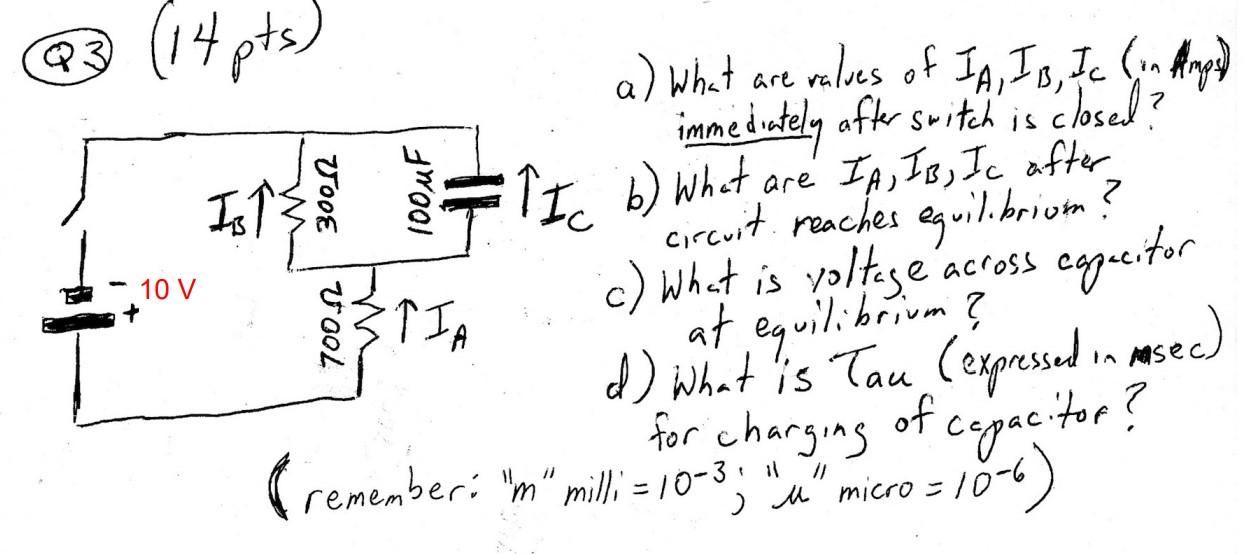 Q3 (14 pts)
a) What are values of I_A, I_B, I_C (in Amps)
immediately after switch is closed?
b) What are I_A, I_B, I_C after
circuit reaches equilibrium?
c) What is voltage across capacitor
at equilibrium?
d) What is Tau (expressed in msec)
for charging of capacitor?
I_B ↑
300Ω
100μF
↑ I_C
-
10 V
+
700Ω
↑ I_A
(remember: "m" milli = 10^-3; "μ" micro = 10^-6)